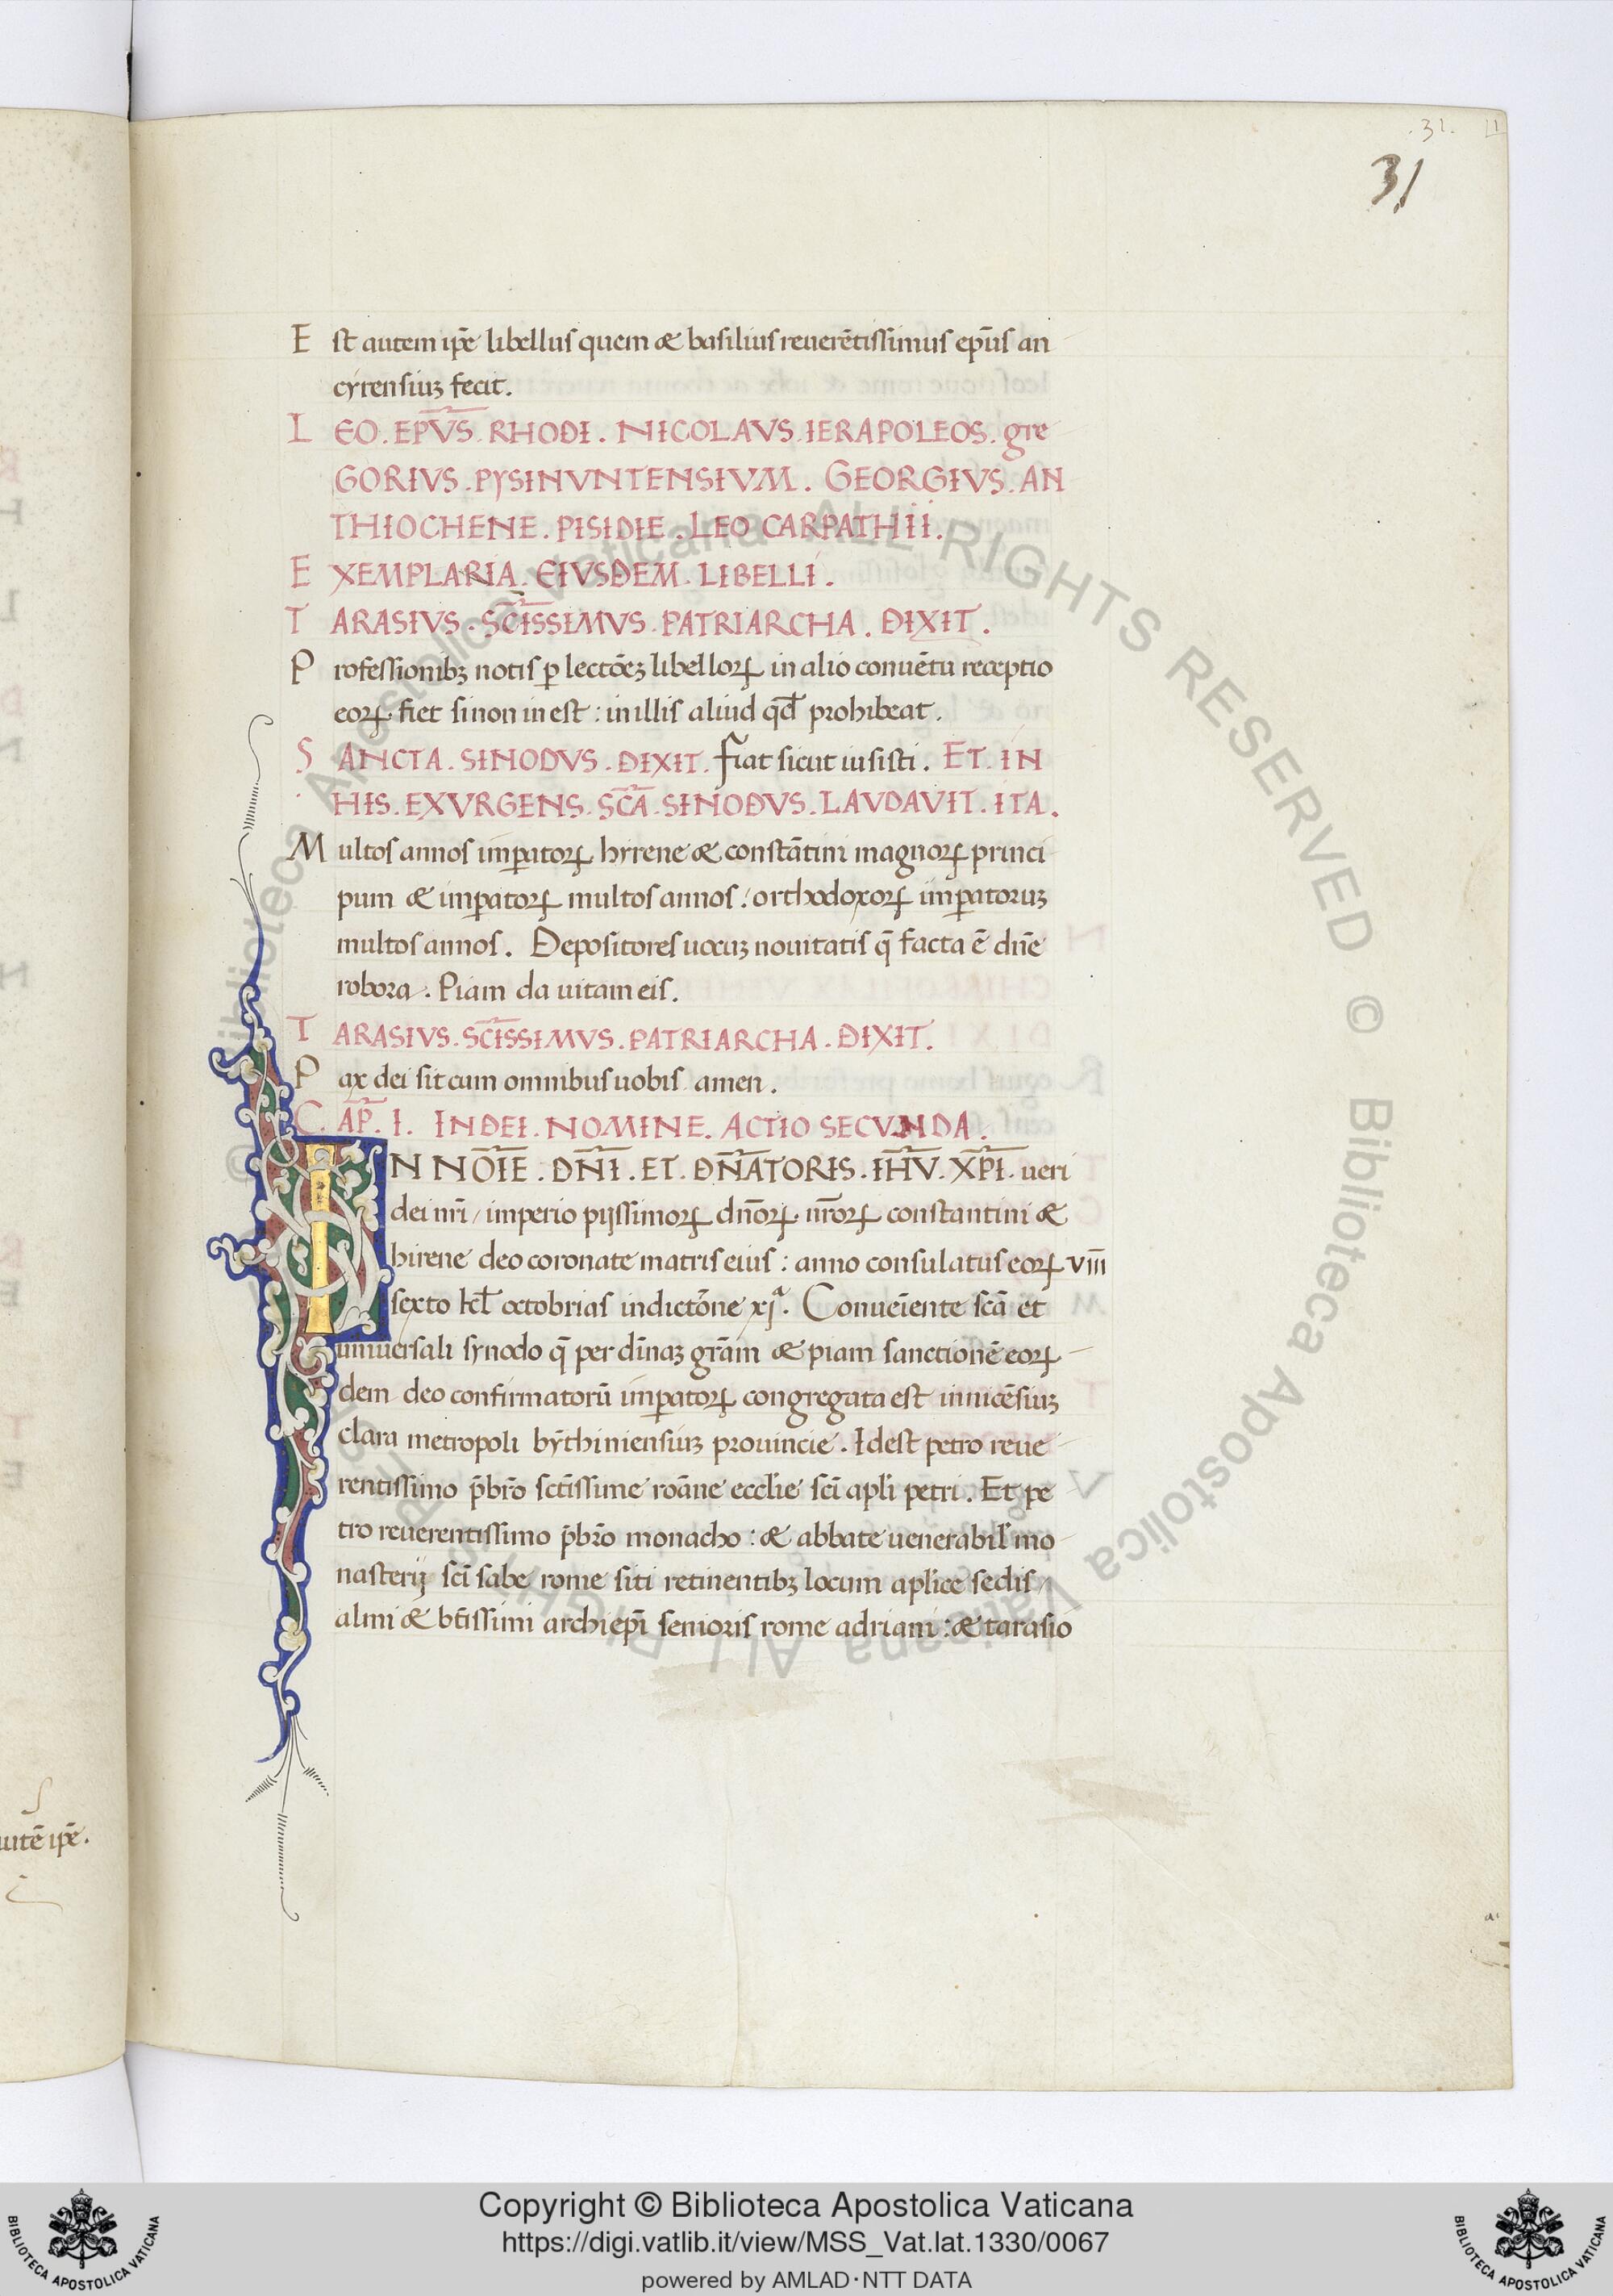 .31. 1
31
Est autem ip̄e libellus quem & basilius reuerētissimus ep̄us an
cyrensiuꝫ fecit.
LEO. EP̄VS. RHODI. NICOLAVS. IERAPOLEOS. gre
GORIVS. PYSINVNTENSIVM. GEORGIVS. AN
THIOCHENE. PISIDIE. LEO CARPATHII.
EXEMPLARIA. EIVSDEM. LIBELLI.
TARASIVS. SC̄ISSIMVS. PATRIARCHA. DIXIT.
Professionibꝫ notis ꝑ lectōeꝫ libelloꝝ in alio conuētu receptio
eoꝝ. fiet si non in est : in illis aliud qd̄ prohibeat.
SANCTA. SINODVS. DIXIT. Fiat sicut iusisti. ET. IN
HIS. EXVRGENS. SC̄A. SINODVS. LAVDAVIT. ITA.
Multos annos imꝑatoꝝ hyrene & constātini magnoꝝ princi
pum & imꝑatoꝝ multos annos / orthodoxoꝝ imꝑatoruꝫ
multos annos. Depositores uocuꝫ nouitatis q̄ facta ē dn̄e
robora. Piam da uitam eis.
TARASIVS. SC̄ISSIMVS. PATRIARCHA. DIXIT.
Pax dei sit cum omnibus uobis amen.
CAP̄. I. IN DEI. NOMINE. ACTIO SECVNDA.
IN NOĪE. DN̄I. ET. DN̄ATORIS. IH̄V. XP̄I. ueri
dei nr̄i / imperio pijssimoꝝ dn̄oꝝ. nr̄oꝝ constantini &
hirene deo coronate matris eius : anno consulatus eoꝝ VIII
sexto kl̄ octobrias indictōne xjᵃ. Conueīente sc̄a et
uniuersali synodo q̄ per diīnaꝫ gr̄am & piam sanctionē eoꝝ
dem deo confirmatorū imꝑatoꝝ congregata est in nicēsiuꝫ
clara metropoli bythiniensiuꝫ prouincie. Idest petro reue
rentissimo p̄br̄o sct̄issime roāne eccl̄ie sc̄i apl̄i petri. Et pe
tro reuerentissimo p̄br̄o monacho : & abbate uenerabil' mo
nasterij sc̄i sabe rome siti retinentibꝫ locum apl̄ice sedis /
almi & bt̄issimi archiep̄i senioris rome adriani : & tarasio
uitē ip̄e.
Copyright © Biblioteca Apostolica Vaticana
https://digi.vatlib.it/view/MSS_Vat.lat.1330/0067
powered by AMLAD·NTT DATA
BIBLIOTECA APOSTOLICA VATICANA
BIBLIOTECA APOSTOLICA VATICANA
© Biblioteca Apostolica Vaticana ALL RIGHTS RESERVED © Biblioteca Apostolica Vaticana ALL RIGHTS RESERVED